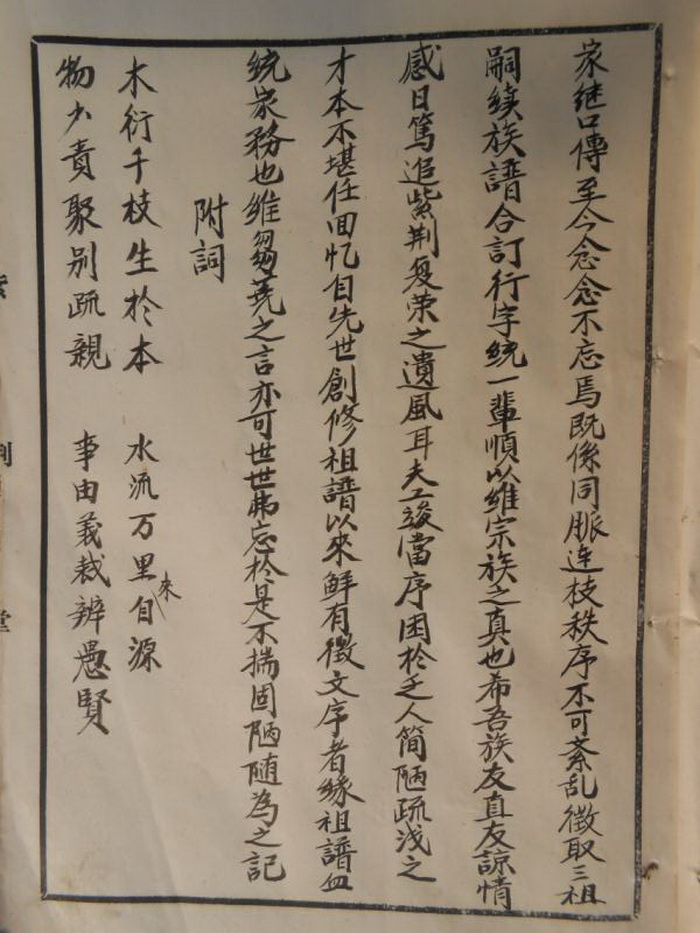 家继口傳至今念念不忘焉既係同脈连枝秩序不可紊乱徵取三祖
嗣续族譜合訂行字统一輩順以维宗族之真也希吾族友直友諒情
感日篤追紫荆复荣之遺風耳夫工竣當序困於乏人简陋疏浅之
才本不堪任回忆自先世創修祖譜以來鮮有徵文序者缘祖譜血
统家務也维芻荛之言亦可世世弗忘於是不揣固陋随為之記
附詞
木衍千枝生於本 水流万里來自源
物以責聚别疏親 事由義裁辨愚賢